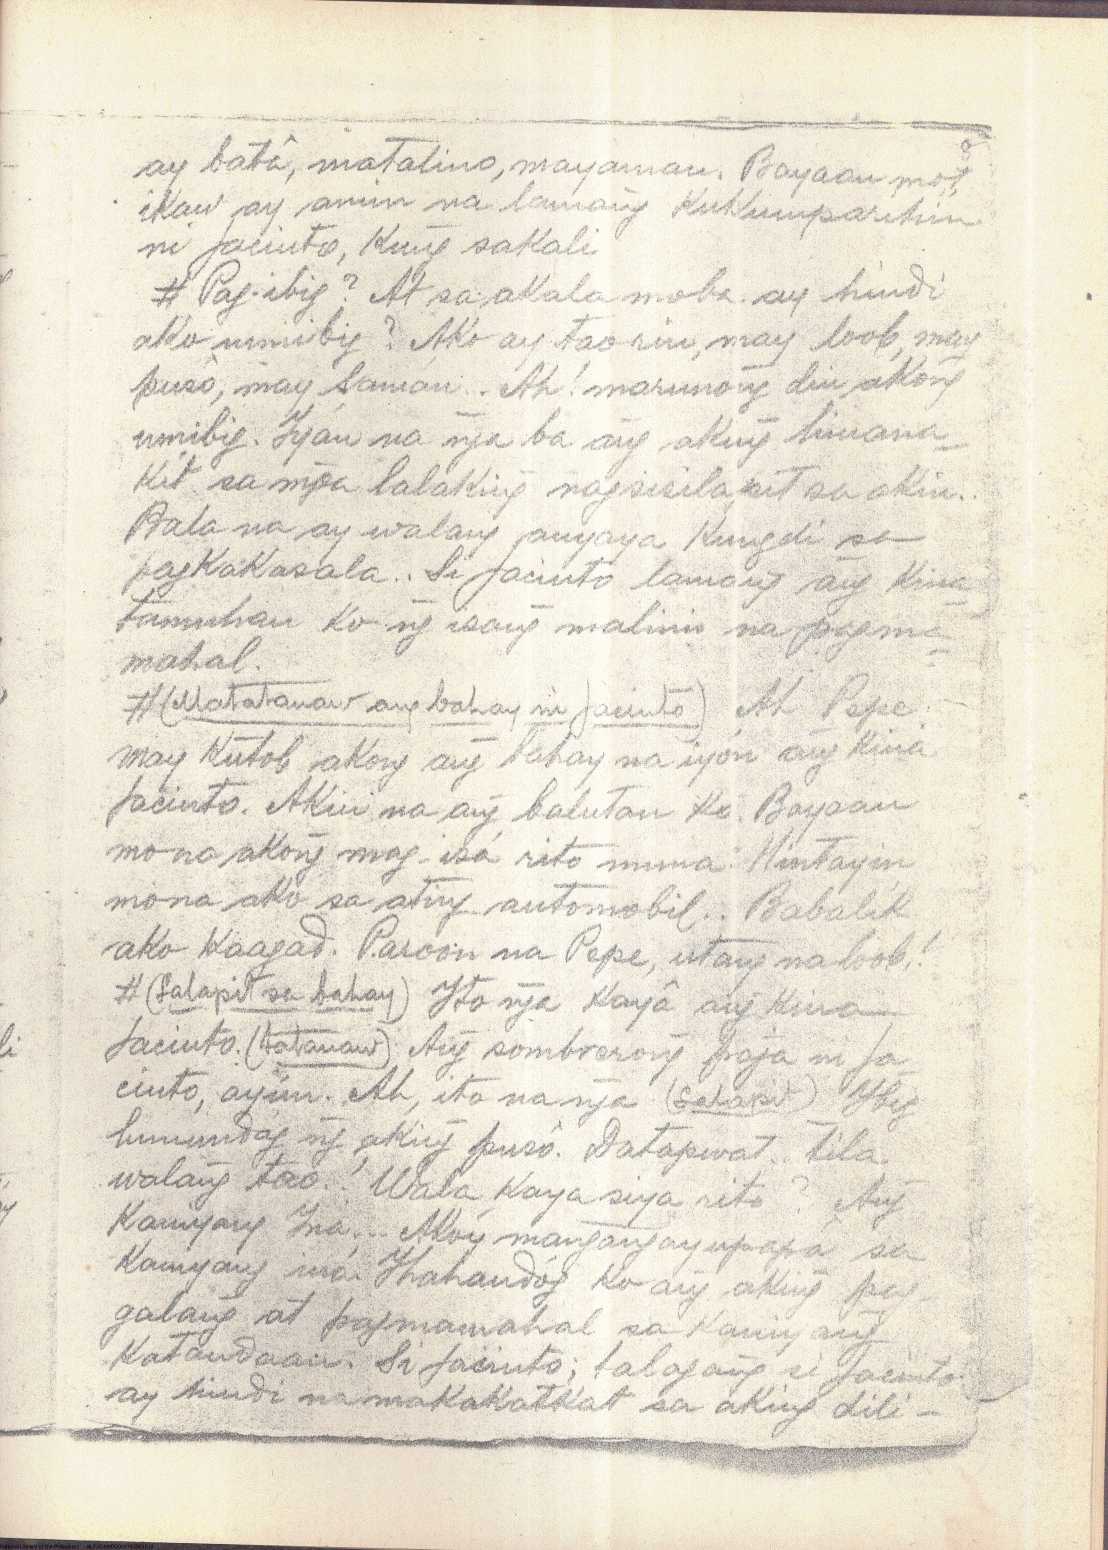 8
ay batâ, matalino, mayaman. Bayaan mo't
ikaw ay amin na lamang̃ kukumparehin
ni Jacinto, kung̃ sakali
# Pag-ibig? At sa akala moba ay hindi
ako umibig? Ako ay tao rin, may loob, may
pusô, may laman.. Ah! marunong̃ din akong̃
umibig. Iyan na ng̃a ba ang̃ aking̃ hinana-
kit sa mg̃a lalaking̃ nagsisilapit sa akin..
Bala na ay walang anyaya kungdi sa
pagkakasala.. Si Jacinto lamang̃ ang̃ kina-
tamuhan ko ng̃ isang̃ malinis na pagma-
mahal.
# (Matatanaw ang bahay ni Jacinto) Ah Pepe.
may kutob akong ang̃ bahay na iyón ang̃ kina
Jacinto. Akin na ang̃ balutan ko. Bayaan
mo na akong̃ mag-isá rito muna. Hintayin
mo na ako sa ating automobil.. Babalik
ako kaagad. Paroon na Pepe, utang na loob,!
# (Lalapit sa bahay) Ito ng̃a kayâ ang̃ kina
Jacinto. (tatanaw) Ang̃ sombrerong̃ paja ni Ja-
cinto, ayún. Ah, ito na ng̃a (Lalapit) Ibig
lumundag ng̃ aking̃ pusô. Datapwat.. tila
walang̃ tao.! Wala kaya siya rito? Ang̃
kanyang Iná... Akoý mang̃ang̃ayupapa sa
kanyang iná. Ihahandóg ko ang̃ aking̃ pag-
galang̃ at pagmamahal sa kaniyang̃
katandaan. Si Jacinto; talagang̃ si Jacinto
ay hindi na makakatkat sa aking dili-